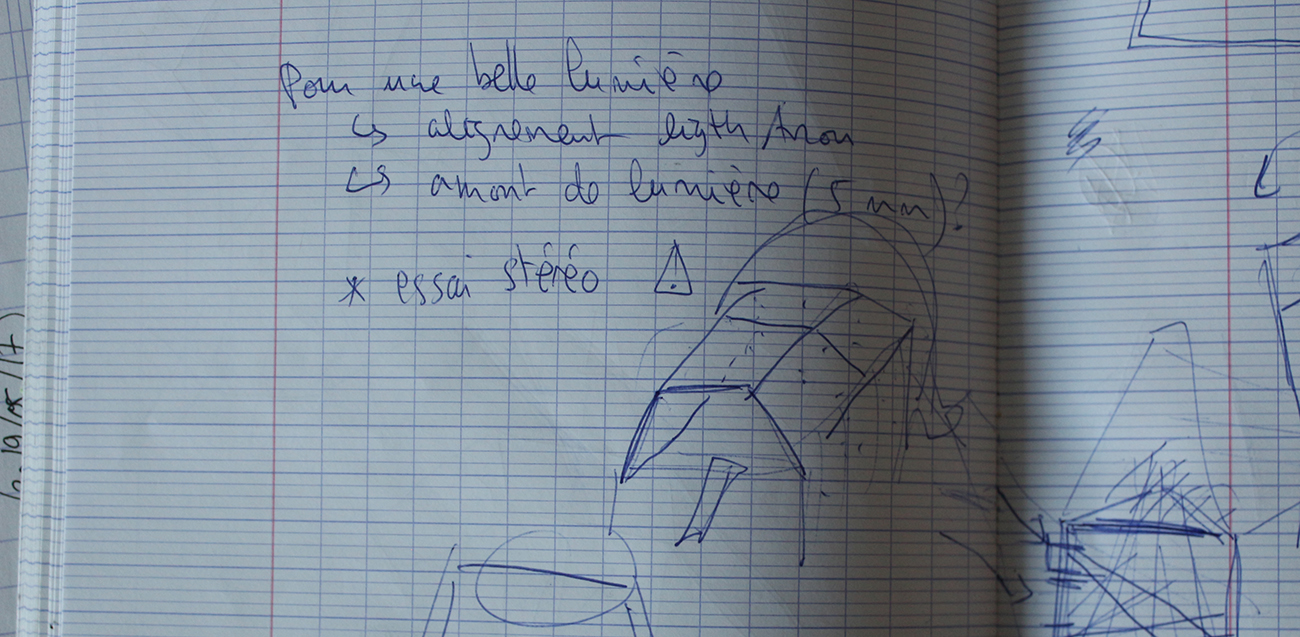 Pour une belle lumière
↳ alignement ligth Anon
↳ amont de lumière (5 mm)?
* essai stéréo ⚠